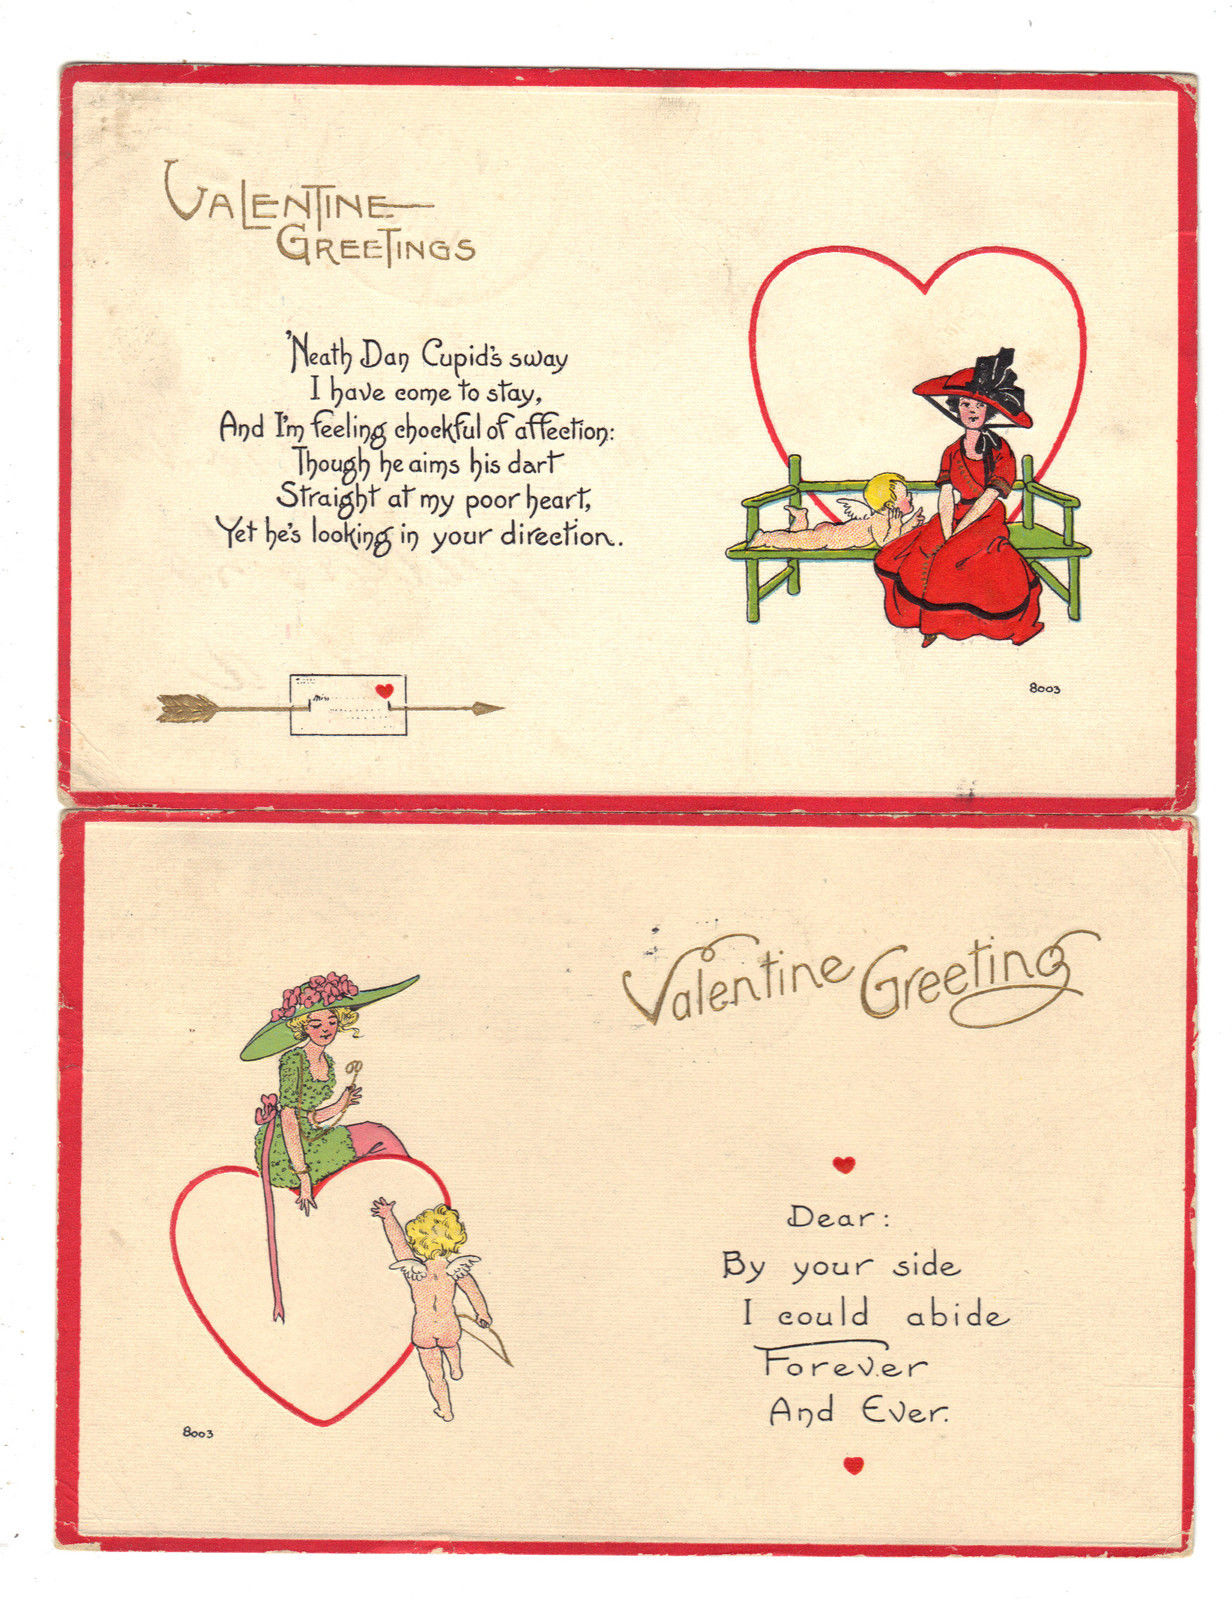 VALENTINE
GREETINGS
'Neath Dan Cupid's sway
I have come to stay,
And I'm feeling chockful of affection:
Though he aims his dart
Straight at my poor heart,
Yet he's looking in your direction.
Miss
8003
Valentine Greeting
Dear:
By your side
I could abide
Forever
And Ever.
8003